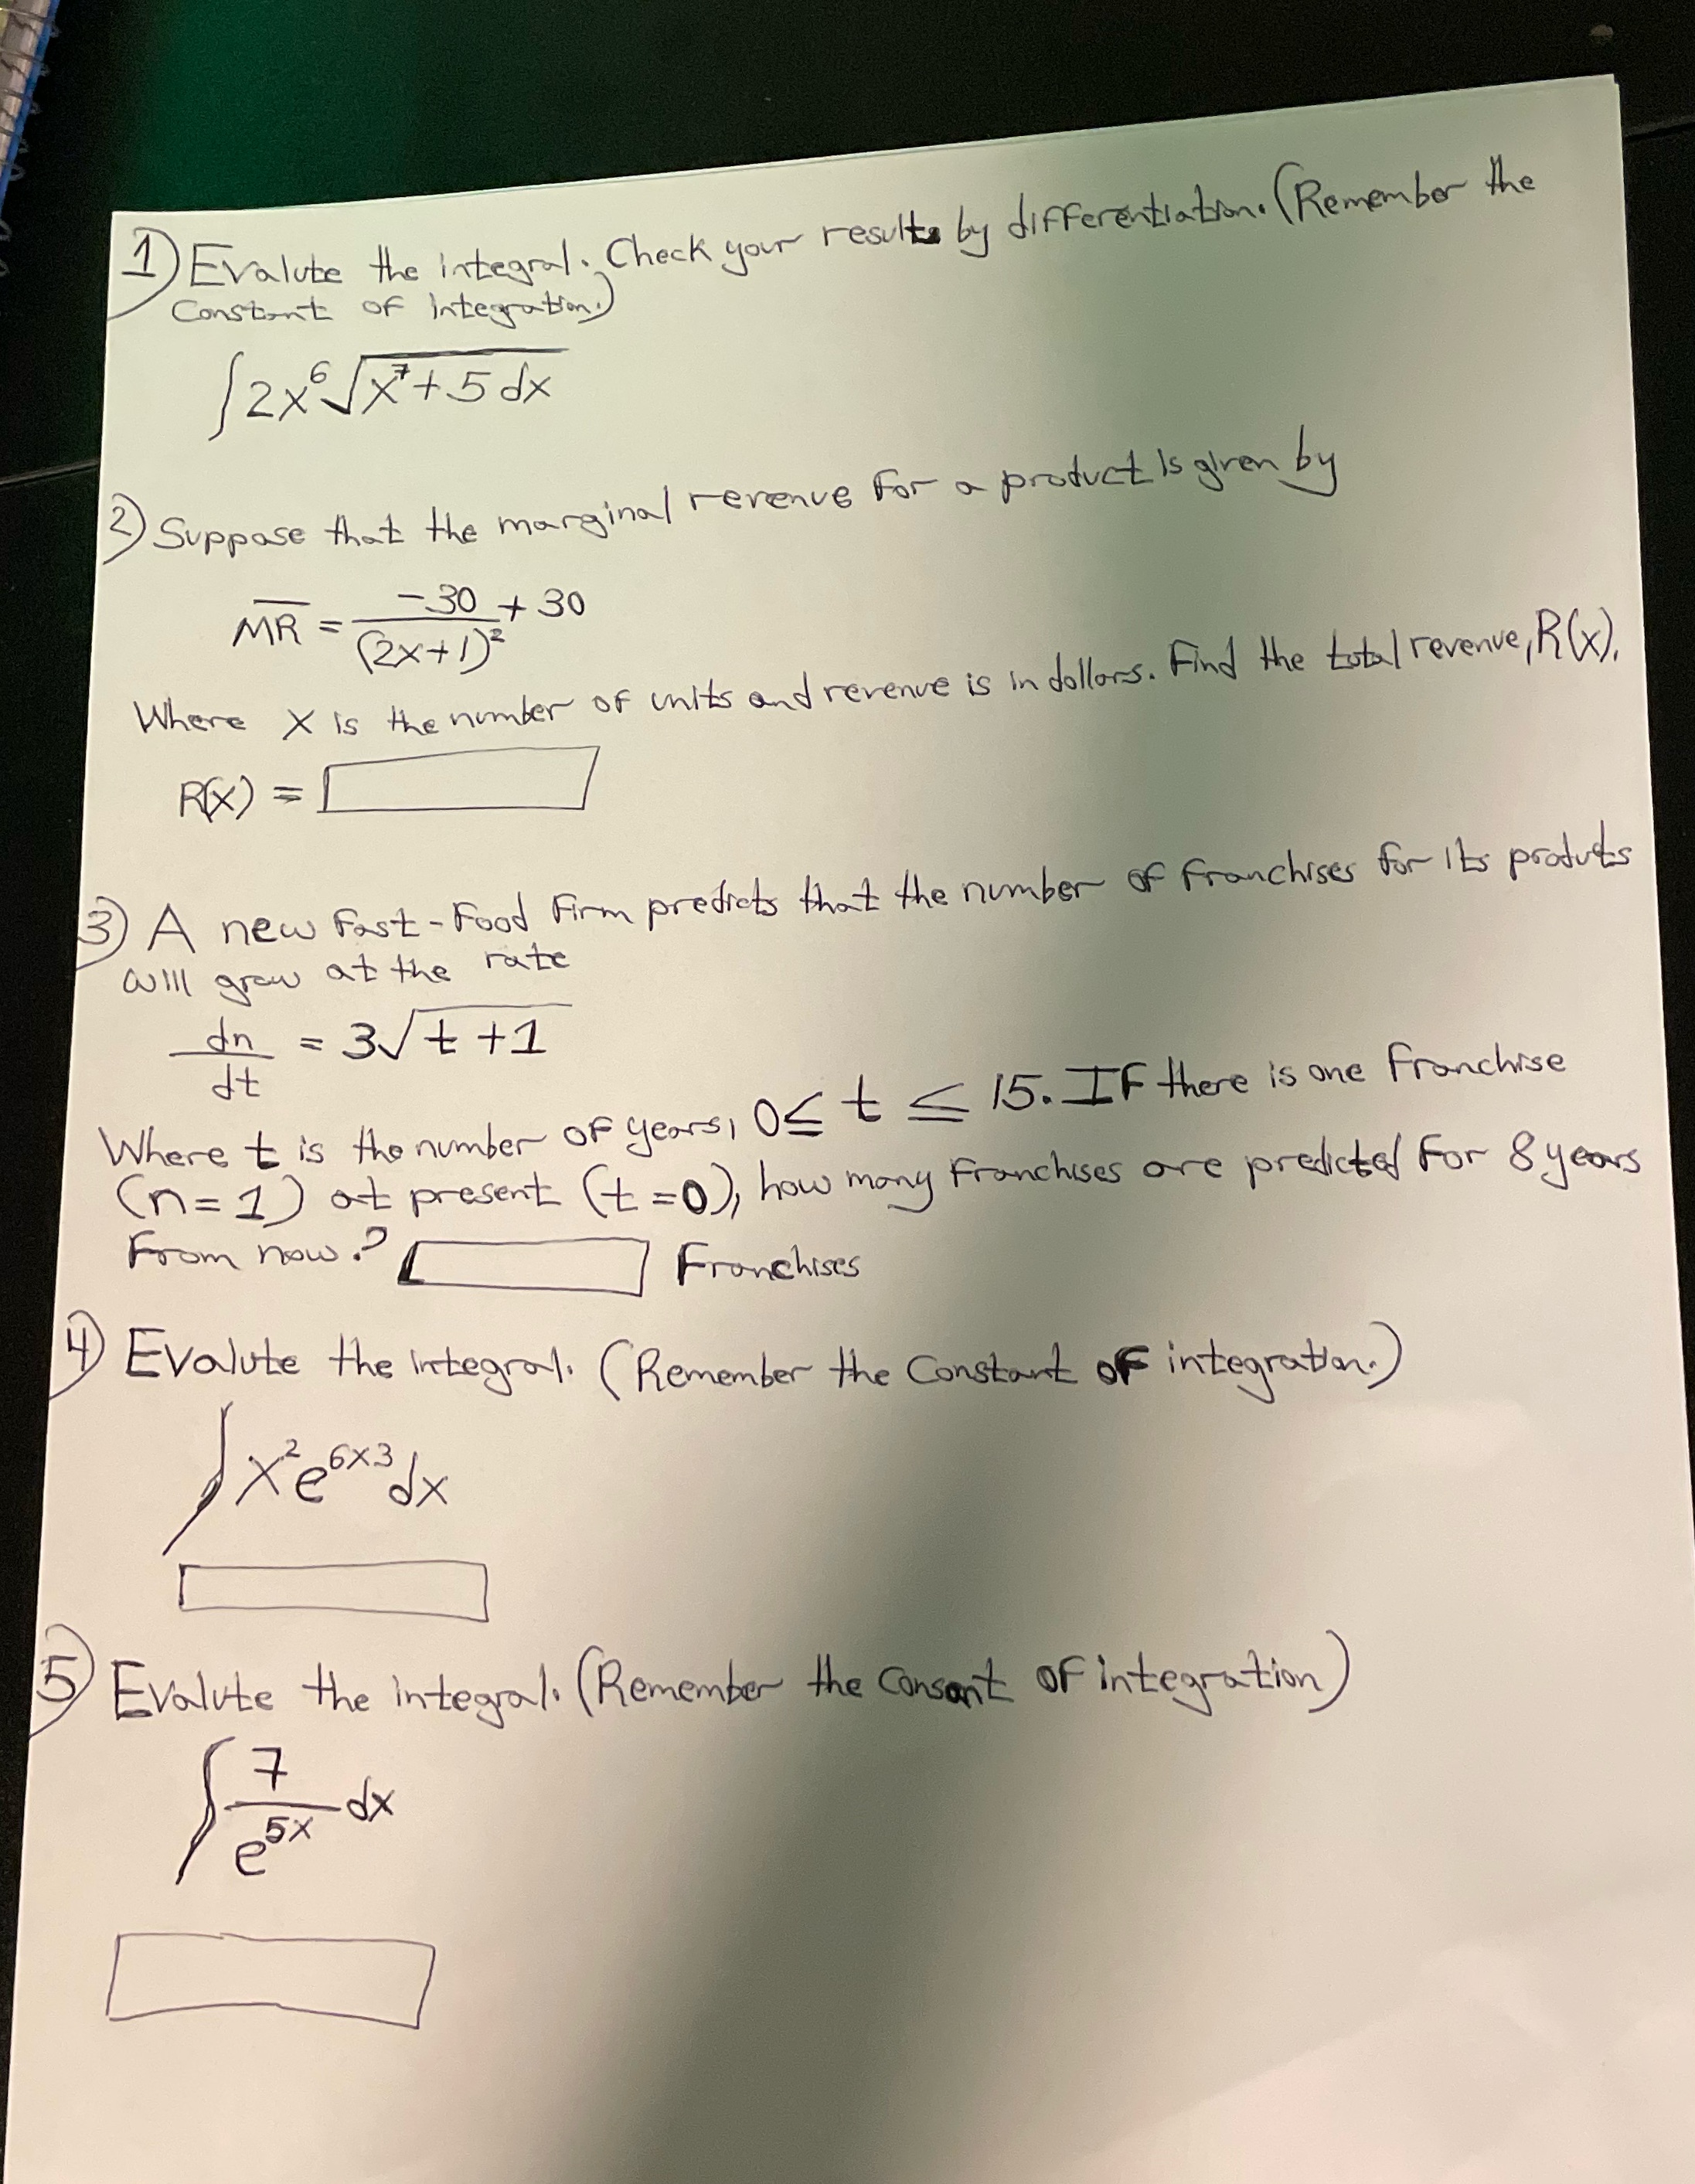 1) Evalute the integral. Check your results by differentiation. (Remember the
Constant of integration.)
∫2x⁶√x⁷+5 dx
2) Suppose that the marginal revenue for a product is given by
MR = -30/(2x+1)² + 30
Where x is the number of units and revenue is in dollars. Find the total revenue, R(x).
R(x) =
3) A new fast-food firm predicts that the number of franchises for its products
will grow at the rate
dn/dt = 3√t+1
Where t is the number of years, 0≤ t ≤ 15. If there is one franchise
(n=1) at present (t=0), how many franchises are predicted for 8 years
from now? Franchises
4) Evalute the integral. (Remember the Constant of integration.)
∫x²e^6x3 dx
5) Evalute the integral. (Remember the Consant of integration)
∫7/e^5x dx